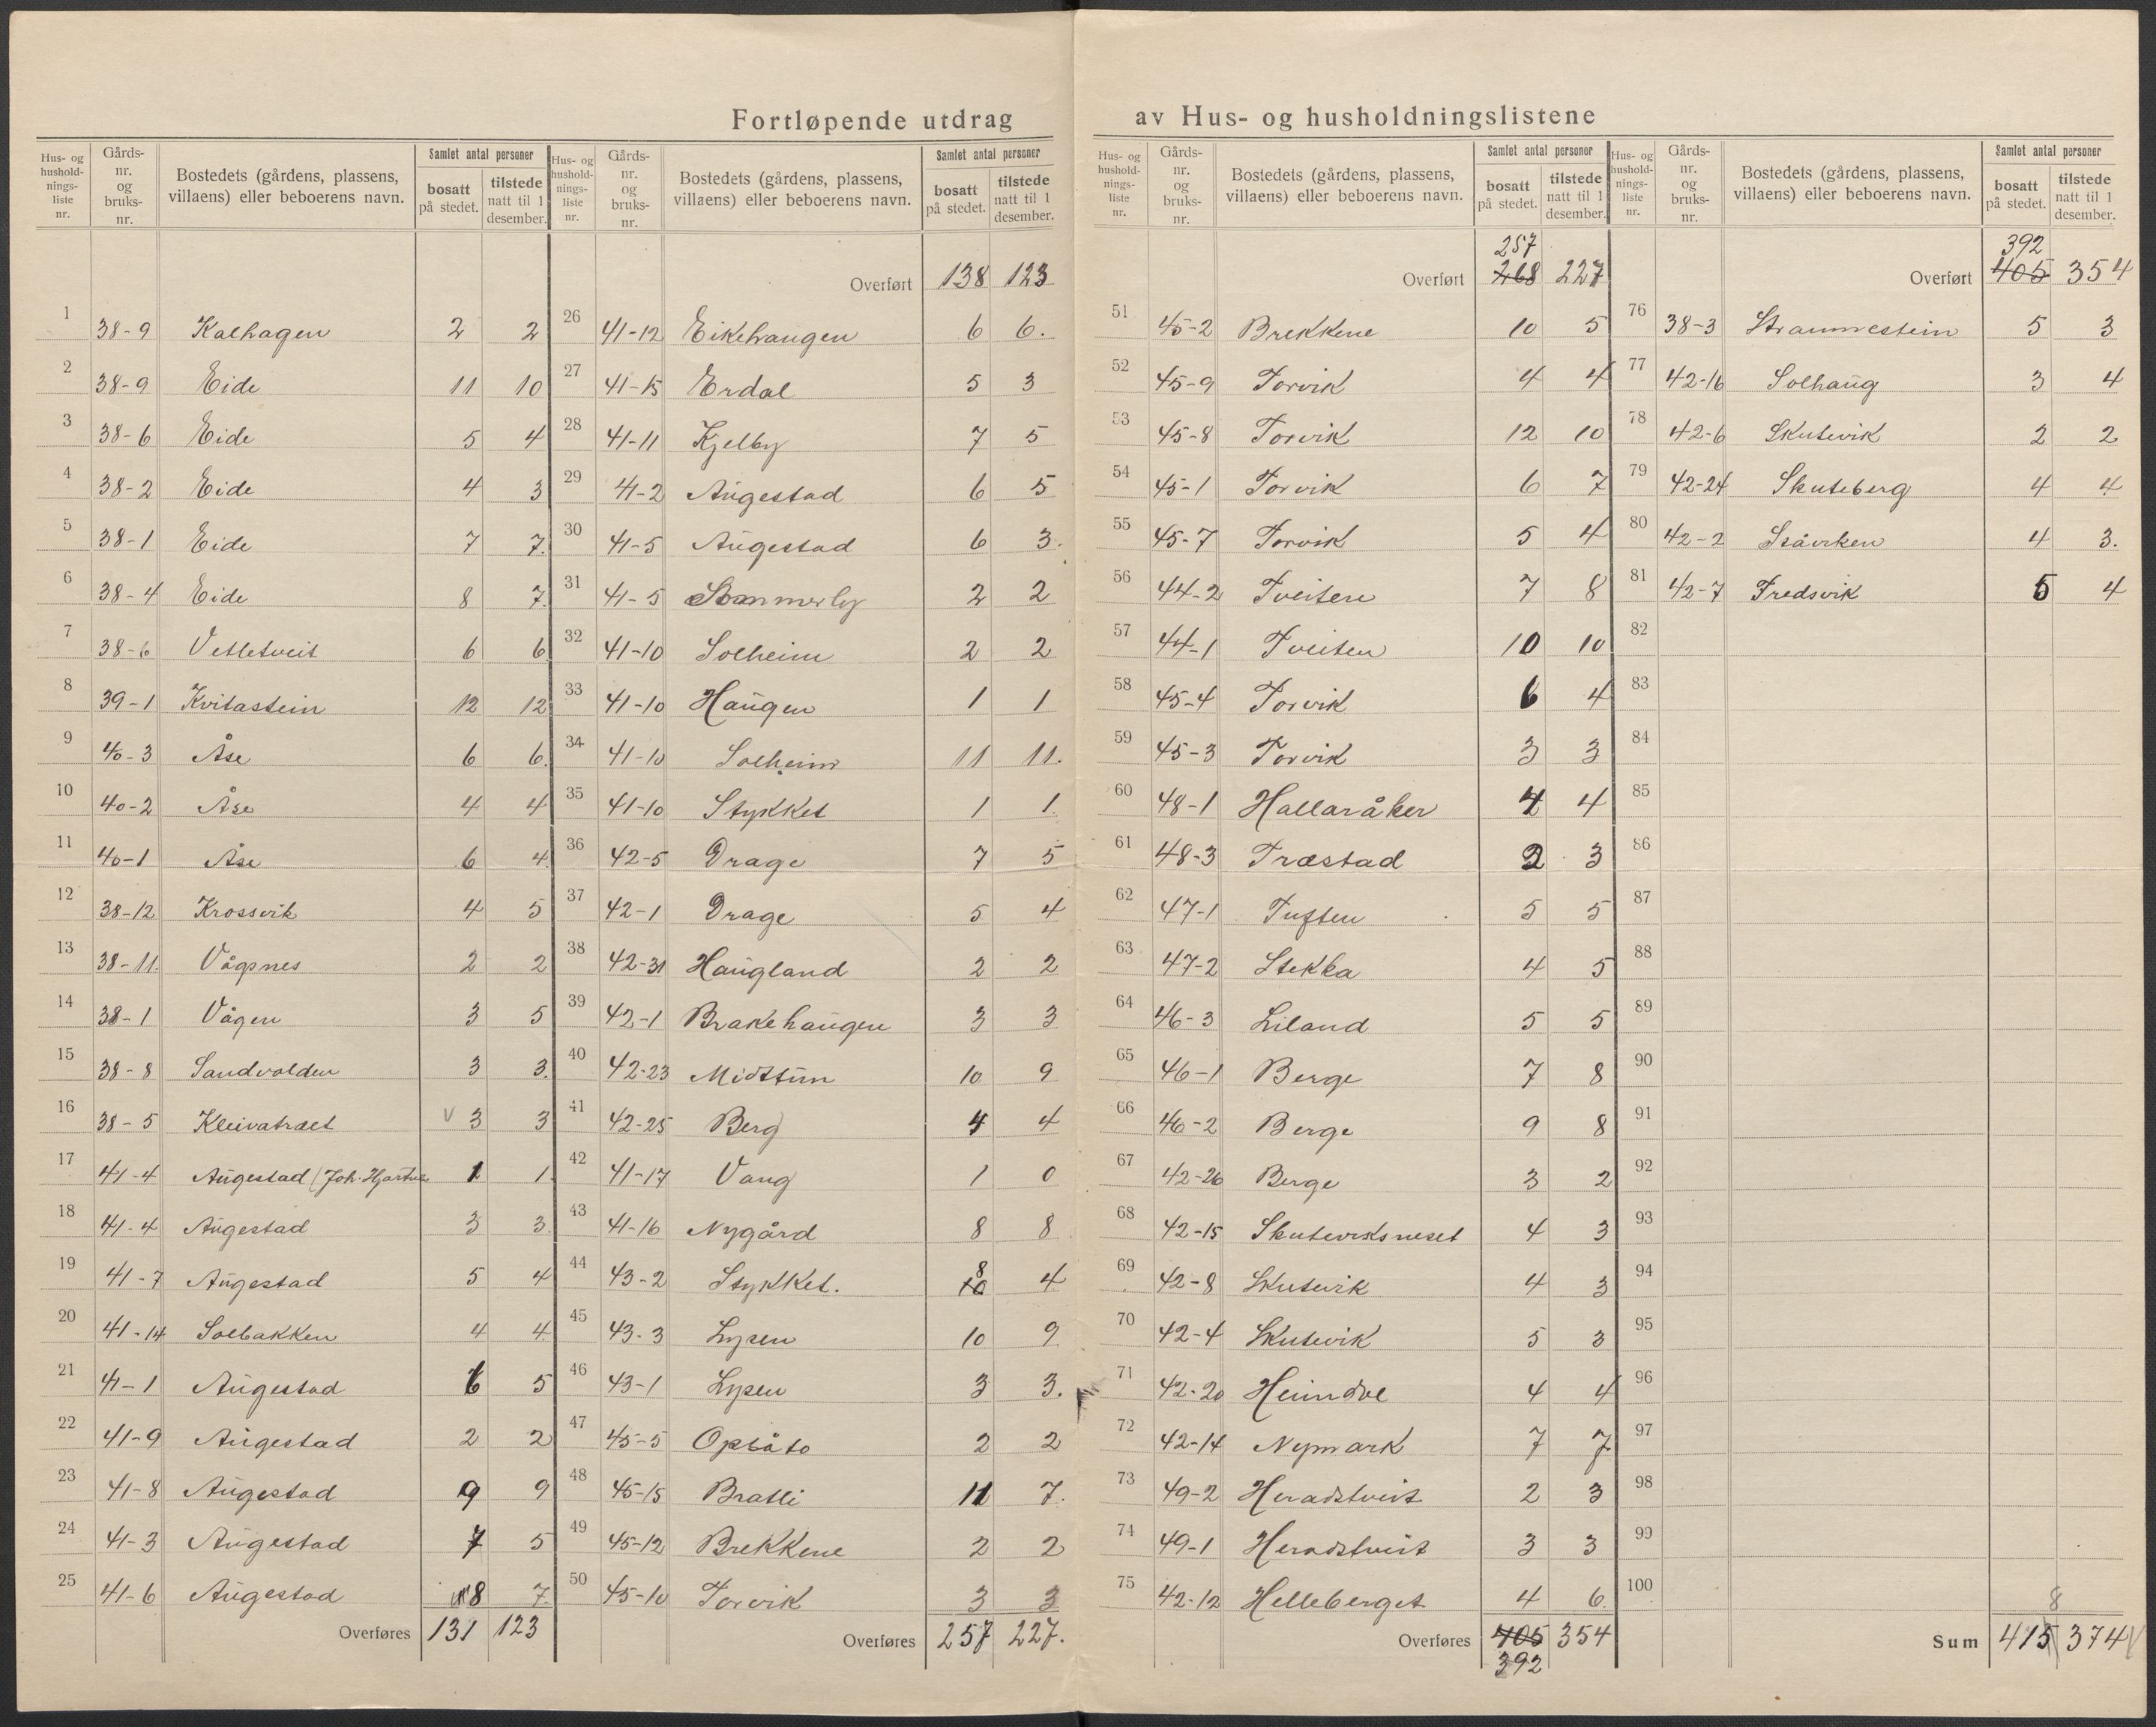 Fortløpende utdrag av Hus- og husholdningslistene
Hus- og hushold-nings-liste nr. Gårds-nr. og bruks-nr. Bostedets (gårdens, plassens, villaens) eller beboerens navn. Samlet antal personer bosatt på stedet. tilstede natt til 1 desember.
1 38-9 Kalhagen 2 2
2 38-9 Eide 11 10
3 38-6 Eide 5 4
4 38-2 Eide 4 3
5 38-1 Eide 7 7.
6 38-4 Eide 8 7.
7 38-6 Vetletveit 6 6
8 39-1 Kvitastein 12 12
9 40-3 Åse 6 6.
10 40-2 Åse 4 4
11 40-1 Åse 6 4
12 38-12 Krossvik 4 5
13 38-11. Vågsnes 2 2
14 38-1 Vågen 3 5
15 38-8 Sandvolden 3 3.
16 38-5 Kleivatræet V 3 3
17 41-4 Augestad (Joh. Hjartnes 1 1
18 41-4 Augestad 3 3.
19 41-7 Augestad 5 4
20 41-14 Solbakken 4 4.
21 41-1 Augestad 6 5
22 41-9 Augestad 2 2
23 41-8 Augestad 9 9
24 41-3 Augestad 7 5
25 41-6 Augestad 8 7.
Overføres 131 123
Hus- og hushold-nings-liste nr. Gårds-nr. og bruks-nr. Bostedets (gårdens, plassens, villaens) eller beboerens navn. Samlet antal personer bosatt på stedet. tilstede natt til 1 desember.
Overført 138 123
26 41-12 Eikehaugen 6 6.
27 41-15 Erdal 5 3
28 41-11 Kjelby 7 5
29 41-2 Augestad 6 5
30 41-5 Augestad 6 3.
31 41-5 Sommerly 2 2
32 41-10 Solheim 2 2
33 41-10 Haugen 1 1
34 41-10 Solheim 11 11.
35 41-10 Stykket 1 1.
36 42-5 Drage 7 5
37 42-1 Drage 5 4
38 42-31 Haugland 2 2
39 42-1 Brakehaugen 3 3
40 42-23 Midttun 10 9
41 42-25 Berg 4 4
42 41-17 Vang 1 0
43 41-16 Nygård 8 8
44 43-2 Stykket. 10 8 4
45 43-3 Lysen 10 9
46 43-1 Lysen 3 3.
47 45-5 Opsåto 2 2
48 45-15 Bratli 11 7.
49 45-12 Brekkene 2 2
50 45-10 Torvik 3 3
Overføres 257 227.
Hus- og hushold-nings-liste nr. Gårds-nr. og bruks-nr. Bostedets (gårdens, plassens, villaens) eller beboerens navn. Samlet antal personer bosatt på stedet. tilstede natt til 1 desember.
257
Overført 268 227
51 45-2 Brekkene 10 5
52 45-9 Torvik 4 4
53 45-8 Torvik 12 10
54 45-1 Torvik 6 7
55 45-7 Torvik 5 4
56 44-2 Tveiten 7 8
57 44-1 Tveiten 10 10
58 45-4 Torvik 6 4
59 45-3 Torvik 3 3
60 48-1 Hallaråker 4 4
61 48-3 Træstad 2 3
62 47-1 Tuften 5 5
63 47-2 Stekka 4 5
64 46-3 Liland 5 5
65 46-1 Berge 7 8
66 46-2 Berge 9 8
67 42-26 Berge 3 2
68 42-15 Skuteviksneset 4 3
69 42-8 Skutevik 4 3
70 42-4 Skutevik 5 3
71 42-20 Heimdal 4 4
72 42-14 Nymark 7 7
73 49-2 Heradstveit 2 3
74 49-1 Heradstveit 3 3
75 42-12 Helleberget 4 6
Overføres 405 354
392
Hus- og hushold-nings-liste nr. Gårds-nr. og bruks-nr. Bostedets (gårdens, plassens, villaens) eller beboerens navn. Samlet antal personer bosatt på stedet. tilstede natt til 1 desember.
392
Overført 405 354
76 38-3 Straumestein 5 3
77 42-16 Solhaug 3 4
78 42-6 Skutevik 2 2
79 42-24 Skuteberg 4 4
80 42-2 4 3.
81 42-7 Fredsvik 5 4
82
83
84
85
86
87
88
89
90
91
92
93
94
95
96
97
98
99
100
8
Sum 415 374 V